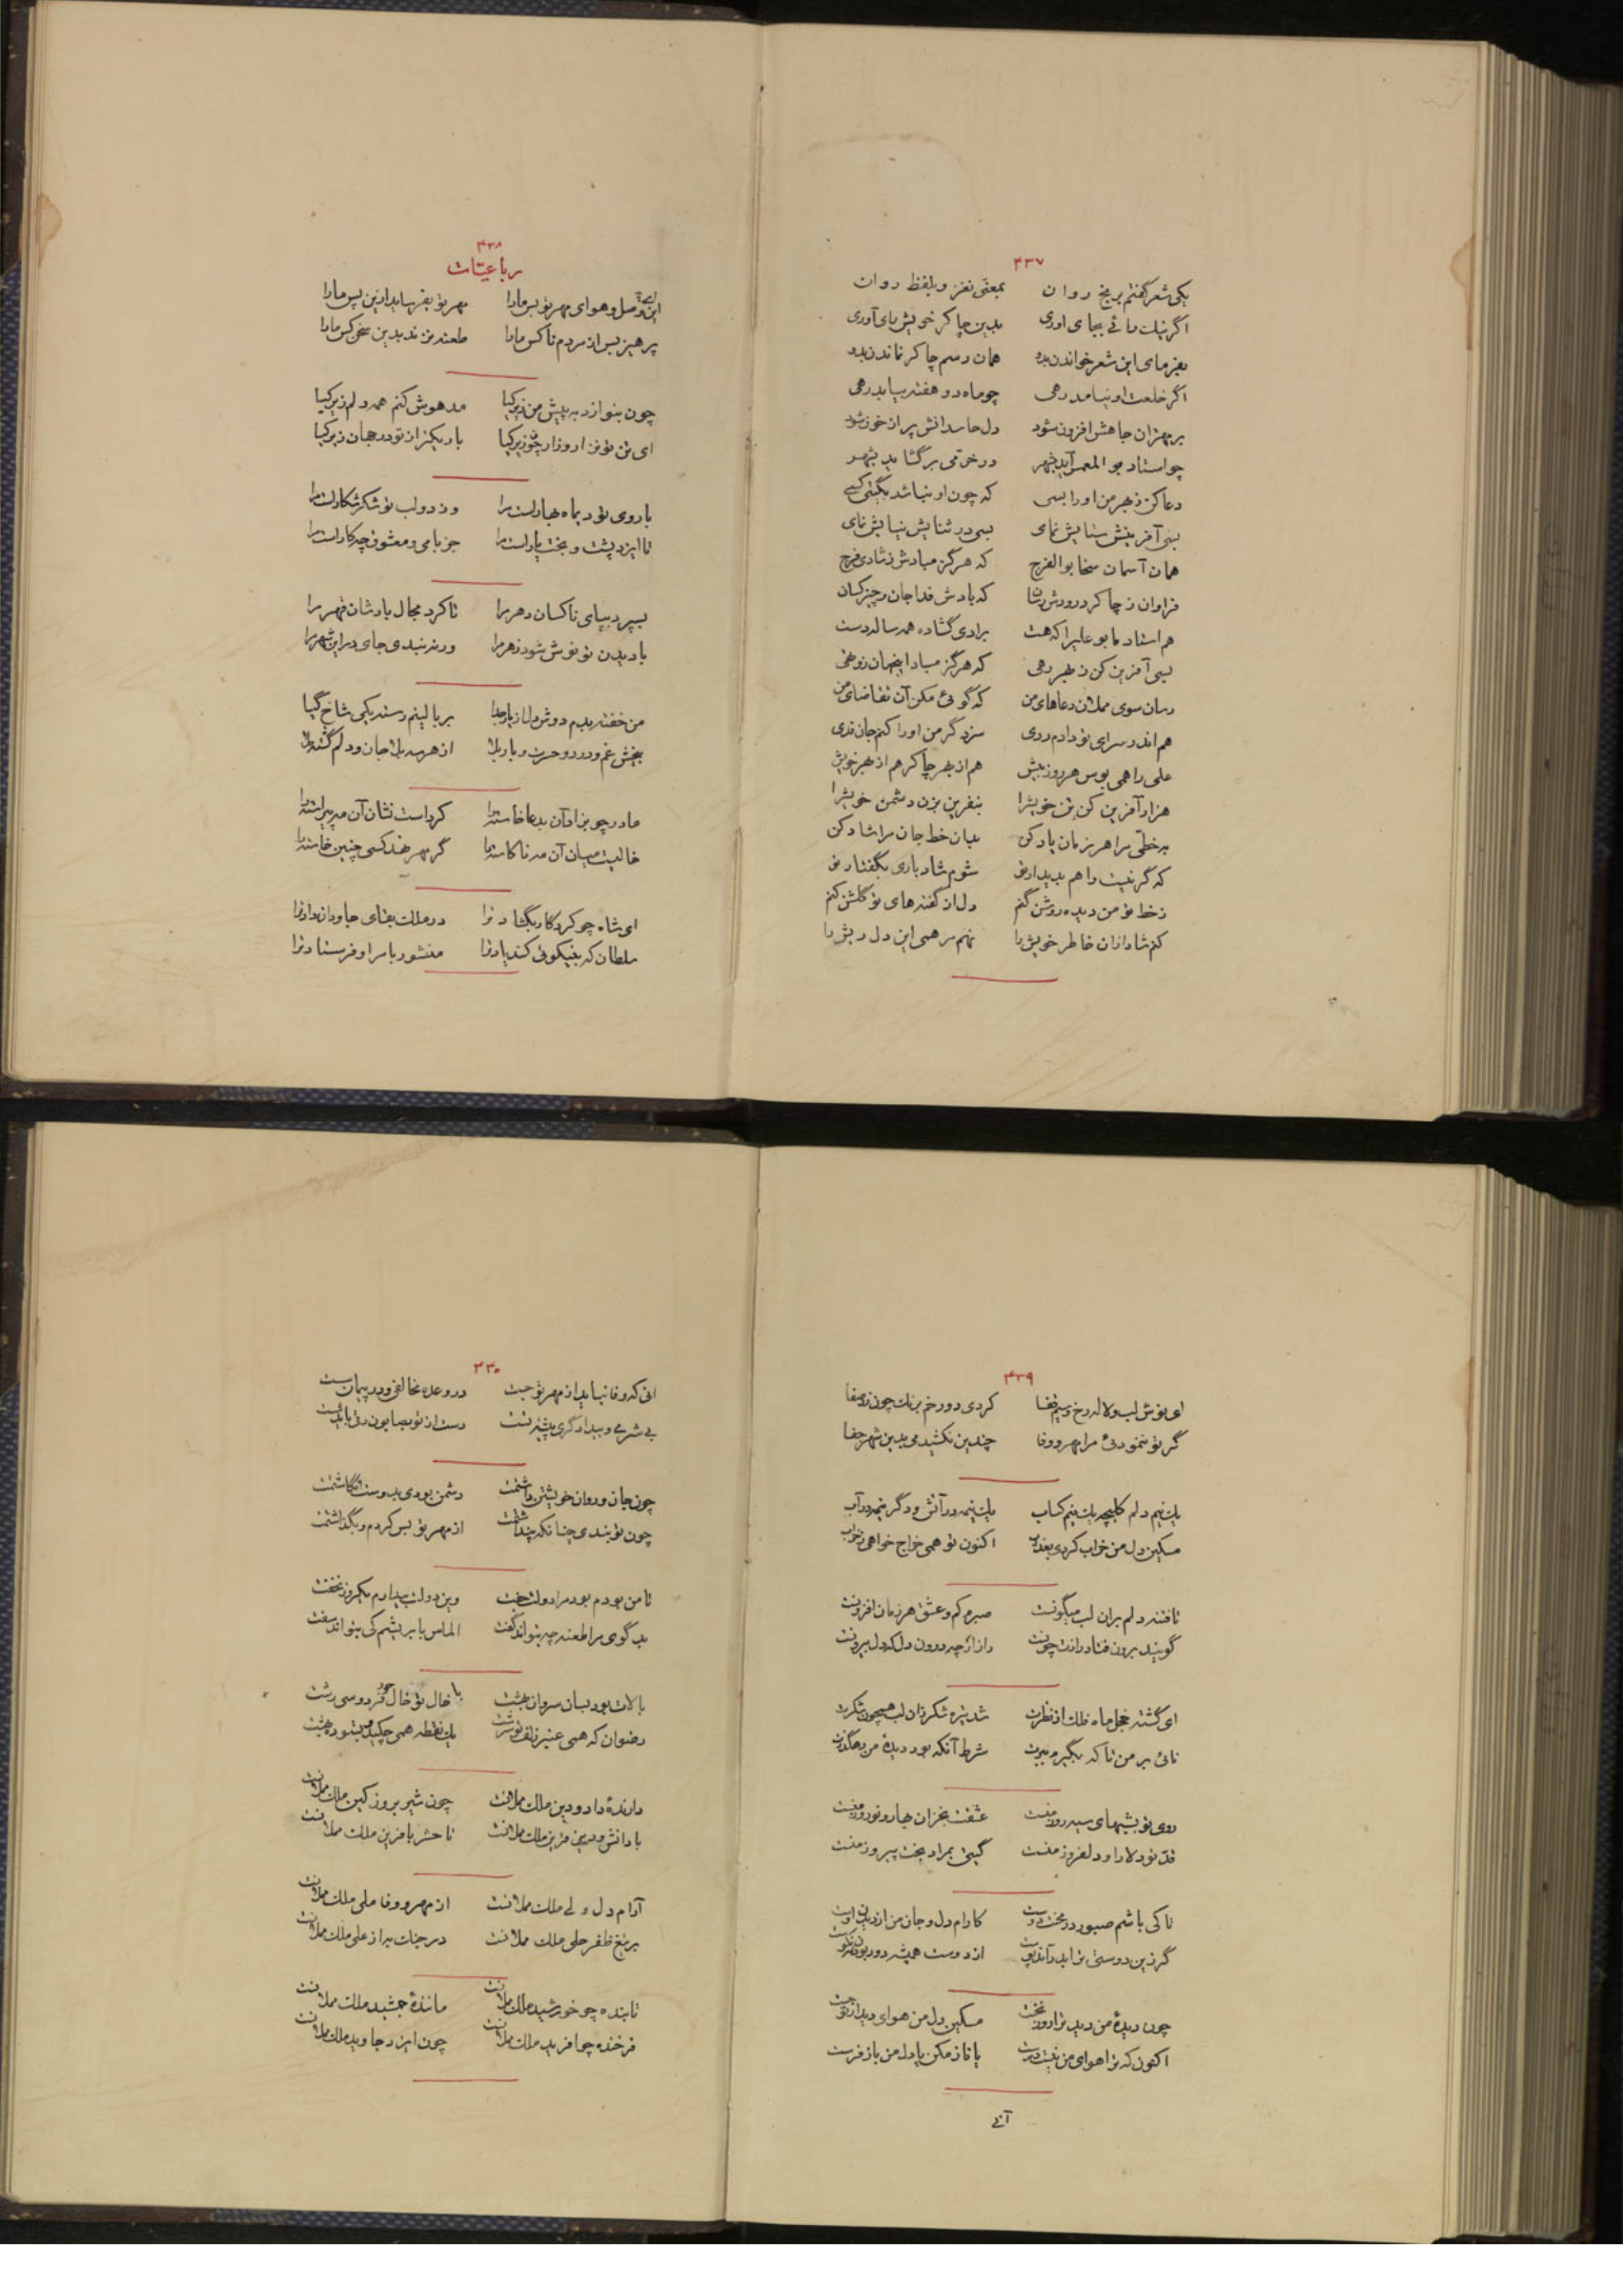 ۴۳۷
یکی شعر گفتم بر نج روان بمعنی نغز و بلفظ روان
اگر نیک رائی بجای آوری بدین چاکر خویش رای آوری
بفرمای این شعر خواندن بدو همان رسم چاکر نماندن بدو
اگر خلعت او نیامد رهی چو ماه دو هفته بیاید رهی
بر مهتران جاهش افزون شود دل حاسدانش پر از خون شود
چو استاد بو المعمر آید بشهر در خرمی برگشاید بشهر
دعا کن ز بهر من او را بسی که چون او نباشد بگیتی کسی
بسی آفرینش ستایش نمای بسی در ثنایش نیایش نمای
همان آسمان سخا بوالفرج که هرگز مبادش ز شادی فرج
فراوان ز چاکر درودش رسان که بادش فدا جان و چیز کسان
هم استاد ما بو علی را که هست برادی گشاده همه ساله دست
بسی آفرین کن ز بهر رهی که هرگز مبادا ینجهان زو تهی
رسان سوی مملان دعاهای من که گوئی مکن آن تقاضای من
هم اندر سرای تو دادم ردی سزد گر من او را کنم جان فدی
علی را همی بوس هر روز بیش هم از بهر چاکر هم از بهر خویش
هزار آفرین کن تن خویش را بنفرین بزن دشمن خویش را
بخطی مرا هر زمان یاد کن بدان خط جان مرا شاد کن
که گر نیست راهم بدیدار تو شوم شاد باری بگفتار تو
ز خط تو من دیده روشن کنم دل از گفته های تو گلشن کنم
کنم شاد ازان خاطر خویش را نهم مرهمی این دل ریش را
۴۳۸
رباعیات
این وصل و هوای مهر تو بس ما را مهر تو بفریاید ازین پس ما را
پرهیز بس از مردم ناکس ما را طعنه نزند بدین سخن کس ما را
چون بنوازد به پیش من زیر کیا مدهوش کنم همه دلم زیر کیا
ای تن تو نزار و زار چون زیر کیا بار دیگر از تو در جهان زیر کیا
با روی تو دیماه بهار است مرا وز دو لب تو شکر شکار است مرا
تا ایزد پشت و بخت یار است مرا جز با می و معشوق چه کار است مرا
بسپرد بپای ناکسان دهر مرا تا کرد مجال باد شان قهر مرا
با دیدن تو نوش شود زهر مرا ورنه نبدی جای درین شهر مرا
من خفته بدم دوش دل از یار جدا بر بالینم رسته یکی شاخ گیا
بیخش غم و درد و حسرت و بار بلا از هر سه بلا جان و دلم گشته ملا
مادر چو بزاد آن بدعا خاسته را کرد است نشان آن مه پیراسته را
خالیست میان آن مه ناکاسته را گر مهر نهد کسی چنین خاسته را
ای شاه چو کردگار بگشاد ترا در ملک بقای جاودان داد ترا
سلطان که بنیکوئی کند یاد ترا منشور با مرا و فرستاد ترا
۴۳۹
ای نوش لب و لاله رخ و سیم قفا کردی دو رخم برنگ چون زر صفا
گر تو ننمودئی مرا مهر و وفا چندین نکشیدمی بدین شهر جفا
یک نیم دلم کلیچه یک نیم کباب یک نیمه در آتش و دگر نیمه در آب
مسکین دل من خراب کردی بعذاب اکنون تو همی خراج خواهی ز خراب
تا فتنه دلم بران لب میگونست صبرم کم و عشق هر زمان افزونست
گویند برون فتاد رازت چونست راز ارچه درون دل که دل بیرونست
ای گشته خجل ماه فلک از نظرت شد تیره شکر زان لب همچون شکرت
نائی بر من تا که بگیرم ببرت شرط آنکه بود دیدهٔ من رهگذرت
روی تو بشبهای سیه روز منست عشقت بخزان بهار و نوروز منست
قد تو دلارا و دلفروز منست گیتی بمراد بخت پیروز منست
تا کی باشم صبور در محنت دوست کارام دل و جان من از دیدن اوست
گر زین دوستی ترا بد آید پوست از دوست همیشه دور بودن نه نکوست
چون دیدهٔ من دید ترا روز نخست مسکین دل من هوای دیدار تو جست
اکنون که ترا هوای من نیست درست یا ناز مکن یا دل من باز فرست
آنی
۴۴۰
انی که وفا نباید از مهر تو جست در وعده مخالفی و در پیمان سست
بی شرمی و بیدادگری پیشه تست دست از تو بصابون رئی باید شست
چون جان و روان خویشتن داشتمت دشمن بودی بدوست انگاشتمت
چون تو نبدی چنانکه پنداشتمت از مهر تو بس کردم و بگذاشتمت
تا من بودم بود مرا دولت جفت وین دولت بیدارم یکروز نخفت
بدگوی مرا طعنه چه بتواند گفت الماس بابریشم کی بتواند سفت
بالات بود بسان سروان بهشت با خال تو خال حور فردوسی زشت
رضوان که همی عنبر زلف تو سرشت یک نقطه همی چکید و بتوبر بهشت
دارندهٔ داد و دین ملک مملانست چون شیر بروز کین ملک مملانست
با دانش و دین قرین ملک مملانست تا حشر بافرین ملک مملانست
آرام دل ولی ملک مملانست از مهر و وفا ملی ملک مملانست
بر تیغ ظفر حلی ملک مملانست در جنگ برا ز علی ملک مملانست
تابنده چو خورشید ملک مملانست مانندهٔ جمشید ملک مملانست
فرخنده چو افرید ملک مملانست چون ایزد جاوید ملک مملانست